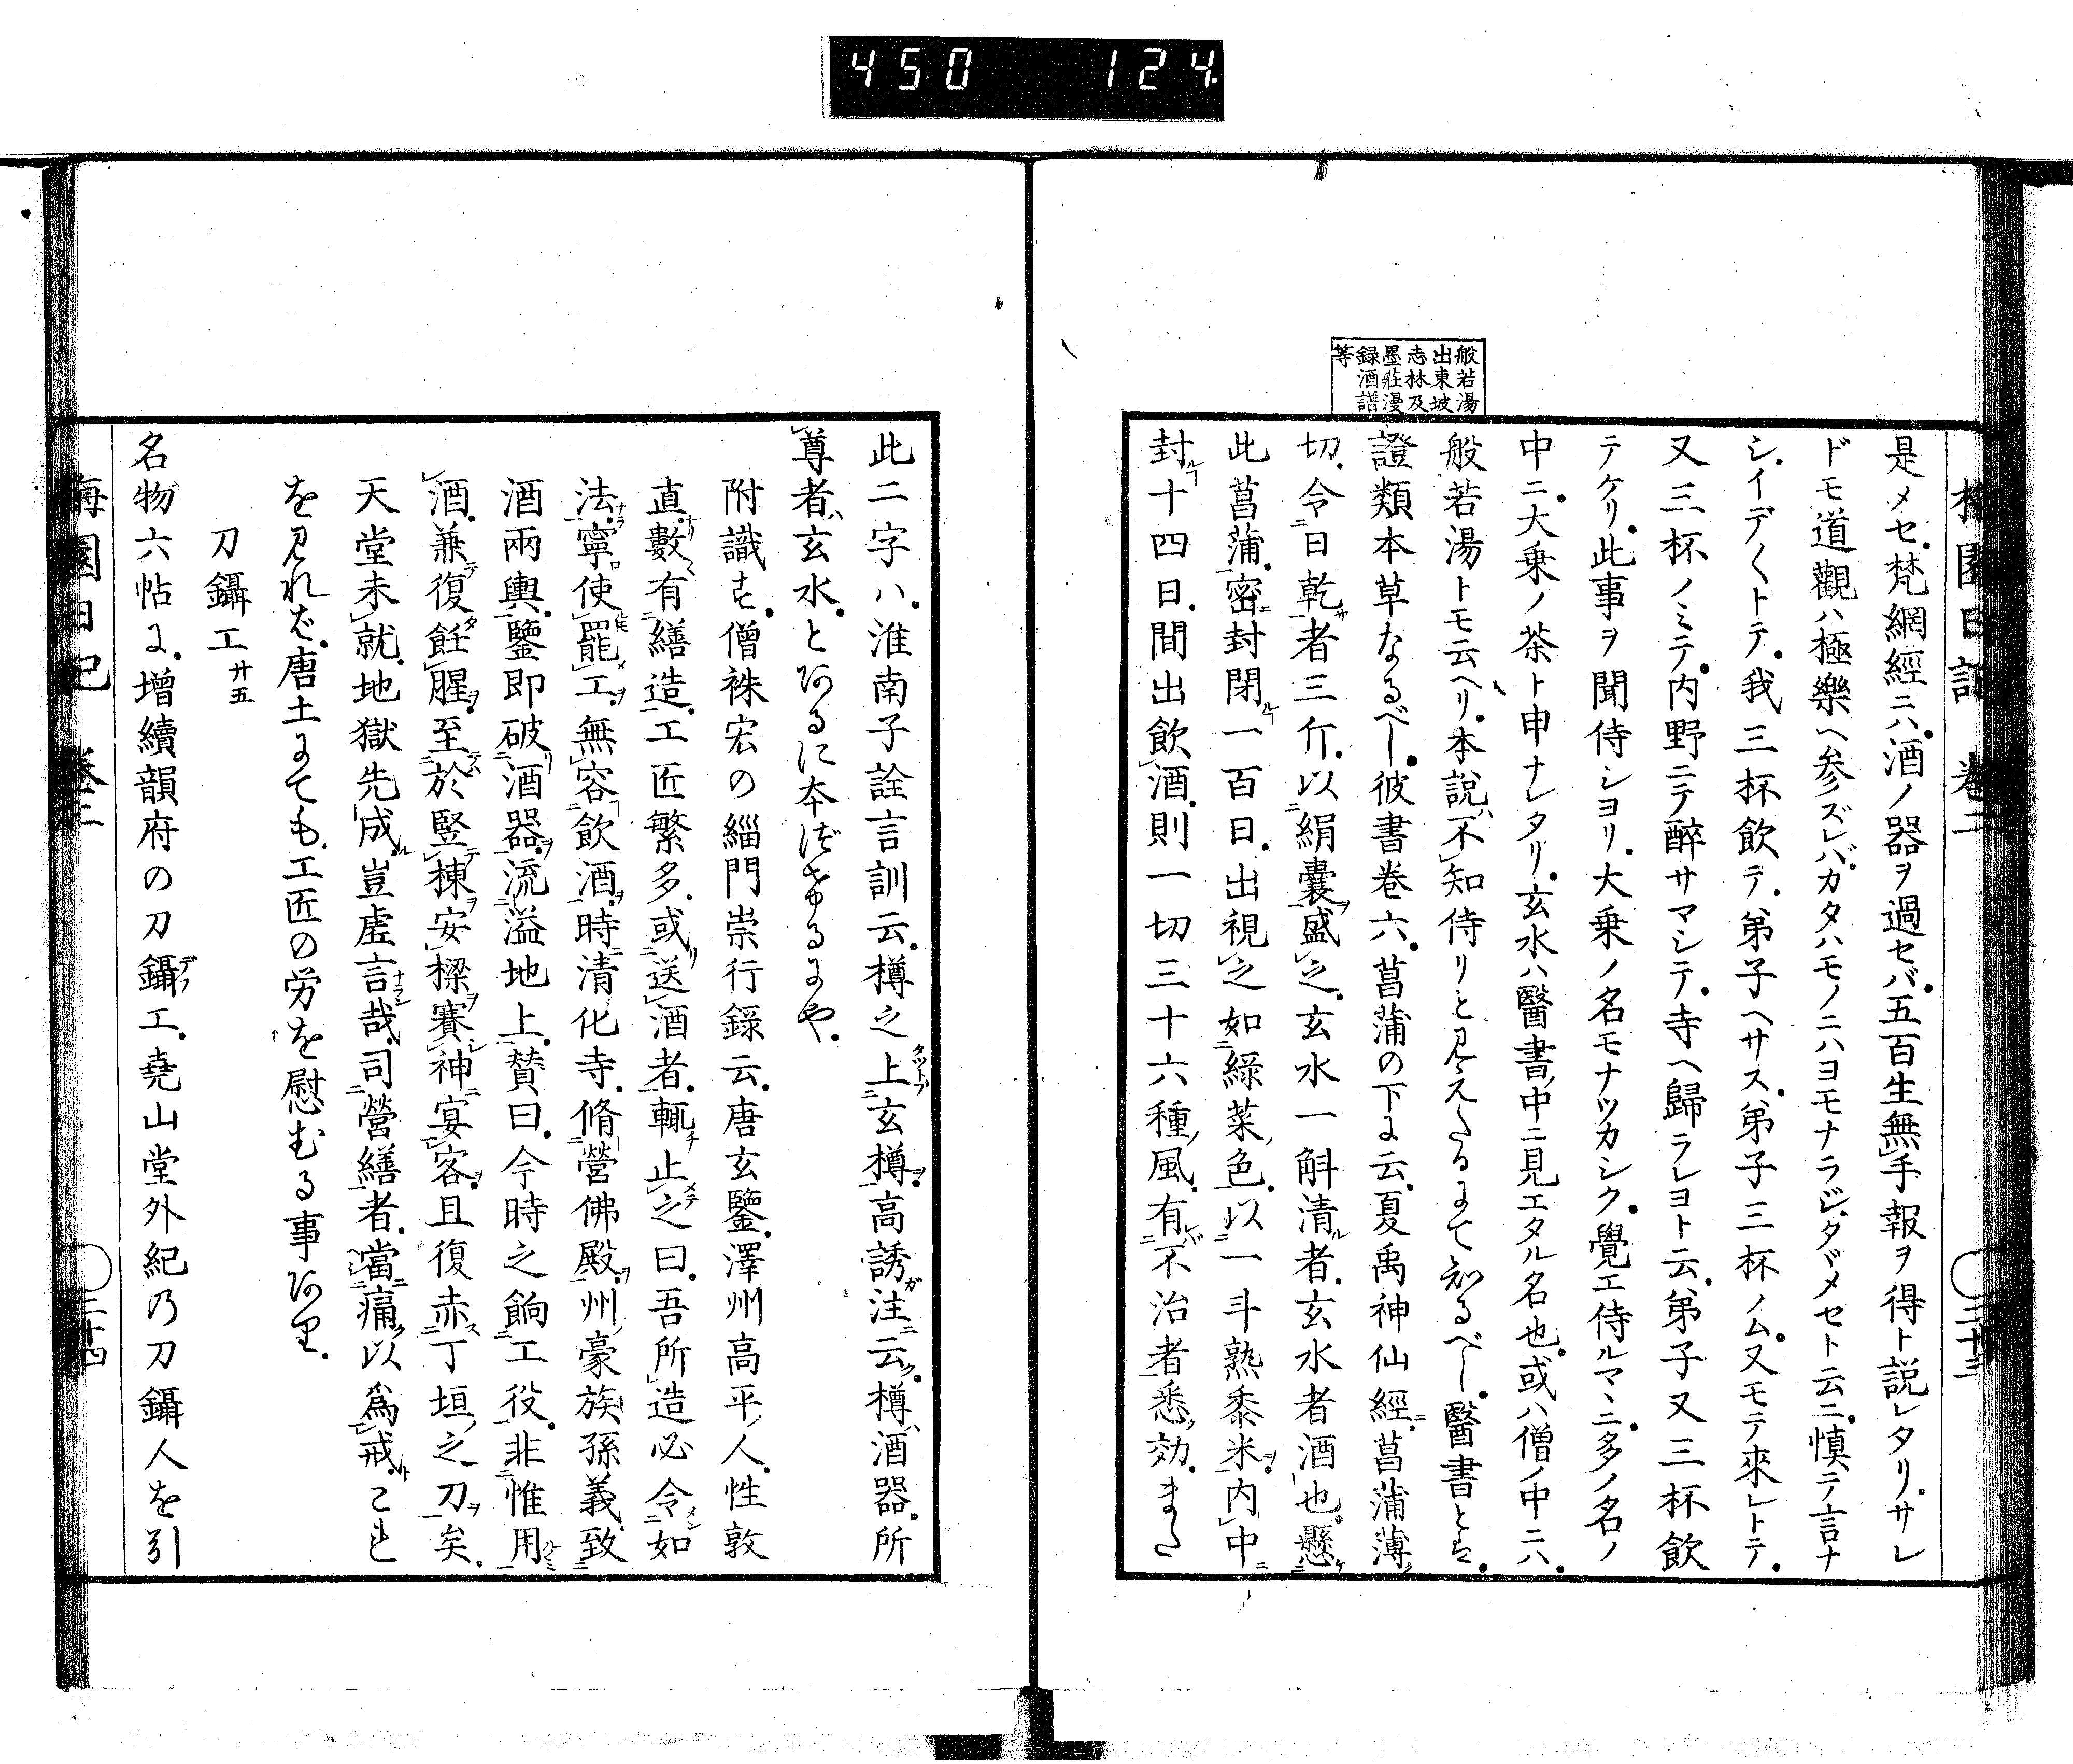 450 124
梅園日記 卷二
二十三
般若湯
出東坡
志林及
墨莊漫
録酒譜
等
是メセ。梵網經ニハ。酒ノ器ヲ過セバ。五百生無手報ヲ得ト説レタリ。サレ
ドモ道觀ハ極樂ヘ参ズレバ。カタハモノニハヨモナラジ。タヾメセト云ニ。慎テ言ナ
シ。イデ〱トテ。我三杯飲テ。弟子ヘサス。弟子三杯ノム。又モテ來レトテ。
又三杯ノミテ。内野ニテ醉サマシテ。寺ヘ歸ラレヨト云。弟子又三杯飲
テケリ。此事ヲ聞侍シヨリ。大乗ノ名モナツカシク。覺エ侍ルマヽニ。多ノ名ノ
中ニ。大乗ノ茶ト申ナレタリ。玄水ハ醫書ノ中ニ見エタル名也。或ハ僧ノ中ニハ。
般若湯トモ云ヘリ。本説ハ不知侍リと見えたるにて知るべし。醫書とは。
證類本草なるべし。彼書卷六。菖蒲の下に云。夏禹神仙經ニ。菖蒲薄ク
切。令日乾サ者三斤。以絹嚢ヲ盛之。玄水一斛清ル者。玄水者酒也。懸ケ
此菖蒲。密ニ封閉ルヿ一百日。出視之如緑菜ノ色。以一斗熟黍米ヲ。内中ニ
封ルヿ十四日。間出飲酒。則一切三十六種ノ風。有レバ不治者悉ク効。また
此二字ハ。淮南子詮言訓云。樽之上タツトブ玄樽ヲ。高誘ガ注ニ云ク。樽ハ酒器。所
尊者ハ玄水。とあるに本づけるにや。
附識す。僧袾宏の緇門崇行錄云。唐玄鑒。澤州高平ノ人。性敦
直ナリ。數〻有繕造。工匠繁多。或送リ酒者。輒チ止メテ之曰。吾所造必令メン如
法ナラ。寧ロ使罷メ工ヲ。無容フ飲酒ヲ。時ニ清化寺。脩營佛殿ヲ。州ノ豪族。孫義。致
酒兩輿。鑒即破リ酒器ヲ。流溢地上。賛曰。今時之餉工役。非惟用ルノミニ
酒。兼テ復飪タ腥ヲ。至テハ於竪テ棟ヲ安樑ヲ賽シ神ニ宴客ヲ。且復赤ス丁垣ノ之刀ヲ矣。
天堂未就。地獄先成ル。豈虚言ナラン哉。司營繕者。當ニ痛ク以爲戒ト。これ
を見れば。唐土にても。工匠の労を慰むる事あり。
刀鑷工 廿五
名物六帖に。增續韻府の刀鑷デフ工。堯山堂外紀乃刀鑷人を引
梅園日記 卷二
二十四